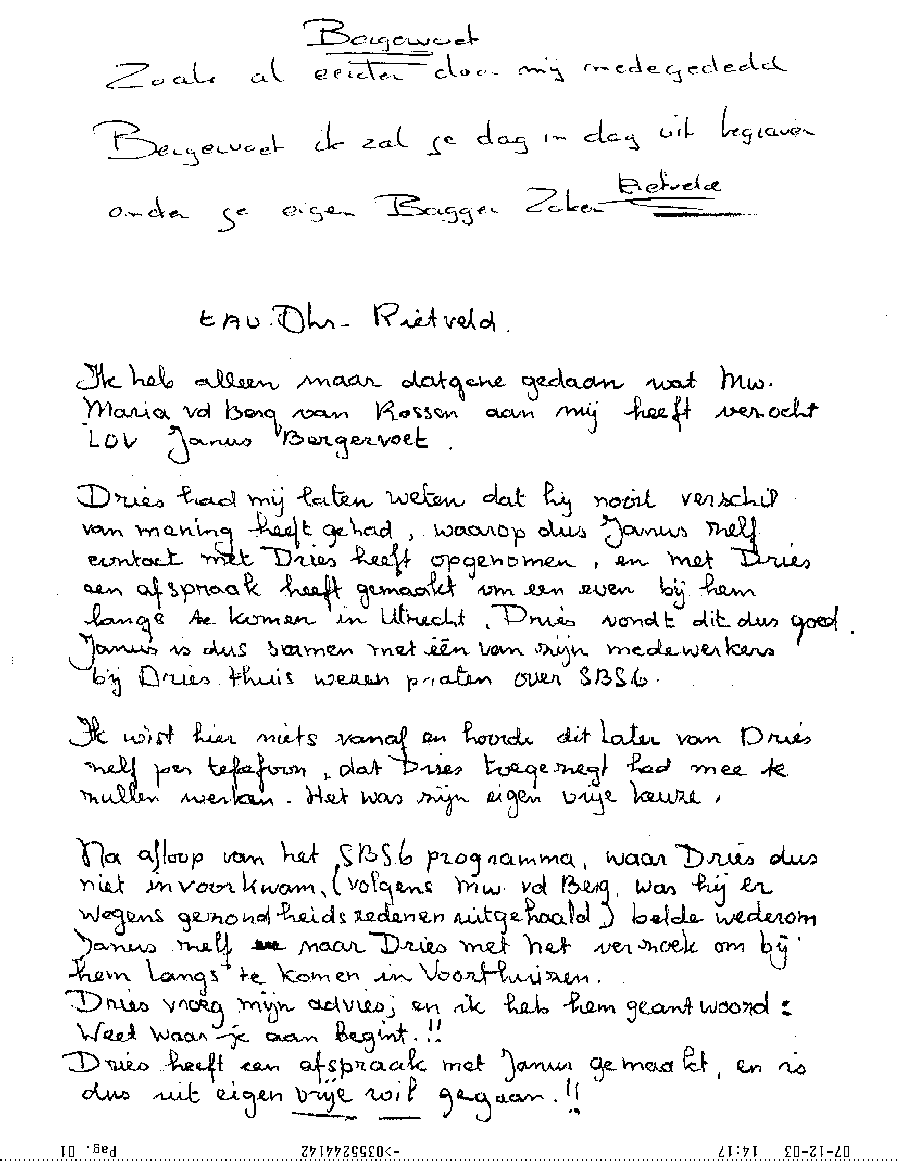 Bergervoet
Zoals al eerder door mij medegedeeld
Bergervoet ik zal je dag in dag uit begraven
onder je eigen Bagger Zaken Rietveld
t.a.v. Dhr- Rietveld.
Ik heb alleen maar datgene gedaan wat Mw.
Maria vd Berg van Rossen aan mij heeft verzocht
IOV Janus Bergervoet.
Dries had mij laten weten dat hij nooit verschil
van mening heeft gehad, waarop dus Janus zelf
contact met Dries heeft opgenomen, en met Dries
een afspraak heeft gemaakt om een even bij hem
langs te komen in Utrecht. Dries vondt dit dus goed.
Janus is dus samen met één van zijn medewerkers
bij Dries thuis wezen praten over SBS6.
Ik wist hier niets vanaf en hoorde dit later van Dries
zelf per telefoon, dat Dries toegezegt had mee te
zullen werken. Het was zijn eigen vrije keuze.
Na afloop van het SBS6 programma, waar Dries dus
niet in voorkwam, (volgens mw. vd Berg, was hij er
wegens gezondheidsredenen uitgehaald) belde wederom
Janus zelf naar Dries met het verzoek om bij
hem langs te komen in Voorthuizen.
Dries vroeg mijn advies; en ik heb hem geantwoord:
Weet waar je aan begint.!!
Dries heeft een afspraak met Janus gemaakt, en is
dus uit eigen vrije wil gegaan.!!
07-12-03 14:17 ->0355244142 Pag. 01